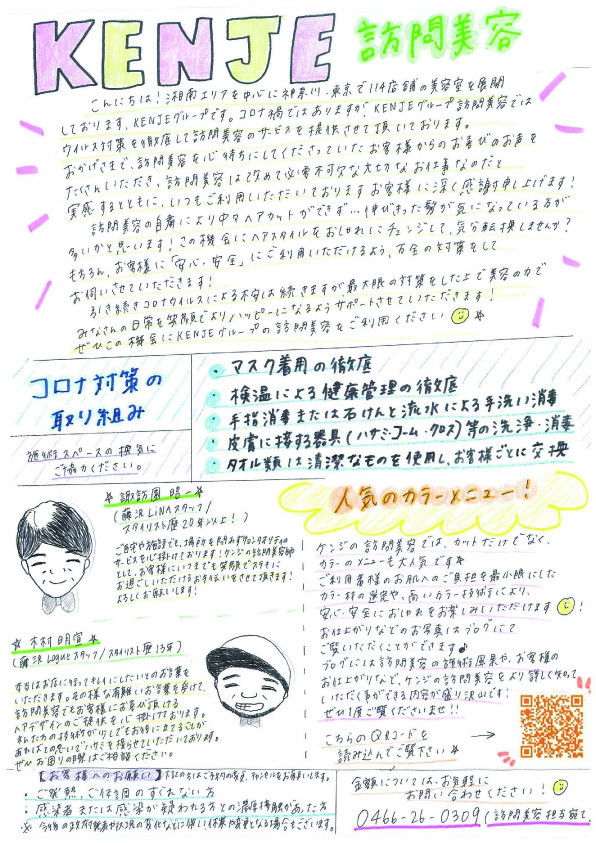 KENJE 訪問美容
こんにちは！湘南エリアを中心に神奈川・東京で114店舗の美容室を展開
しております、KENJEグループです。コロナ禍ではありますがKENJEグループ訪問美容では
ウイルス対策を徹底して訪問美容のサービスを提供させて頂いております。
おかげさまで、訪問美容を心待ちにしてくださっていたお客様からのお喜びのお声を
たくさんいただき、訪問美容は改めて必要不可欠な大切なお仕事なのだと
実感するとともに、いつもご利用いただいておりますお客様に深く感謝申し上げます！
訪問美容の自粛により中々ヘアカットができず…伸びきった髪が気になっている方が
多いかと思います！この機会にヘアスタイルをおしゃれにチェンジして、気分転換しませんか？
もちろん、お客様に「安心・安全」にご利用いただけるよう、万全の対策をして
お伺いさせていただきます！
引き続きコロナウイルスによる不安は続きますが、最大限の対策をした上で美容の力で
みなさんの日常を笑顔でよりハッピーになるようサポートさせていただきます！
ぜひこの機会にKENJEグループの訪問美容をご利用ください
コロナ対策の
取り組み
施術スペースの換気に
ご協力ください。
・マスク着用の徹底
・検温による健康管理の徹底
・手指消毒または石けんと流水による手洗い消毒
・皮膚に接する器具(ハサミ・コーム・クロス)等の洗浄・消毒
・タオル類は清潔なものを使用し、お客様ごとに交換
☆諏訪園 昭一☆
(藤沢LiNAスタッフ/
スタイリスト歴20年以上！)
ご自宅や施設でも、場所を問わずサロンクオリティの
サービスを心掛けております！ケンジの訪問美容師
として、お客様にいつまでも笑顔でステキに
お過ごしいただけるお手伝いをさせて頂きます！
よろしくお願いします！
☆木村明宣☆
(藤沢Logueスタッフ/スタイリスト歴13年)
本当はお店に行ってキレイにしたいとのお言葉を
いただきます。その様な有難いお言葉を受けて、
訪問美容でもお客様にお喜び頂ける
ヘアデザインのご提供を心掛けております。
私たちの技術が少しでもお役に立てることが
あればとの思いでハサミを握らせていただいております。
ぜひお困りの際はご相談ください。
人気のカラーメニュー！
ケンジの訪問美容では、カットだけでなく、
カラーのメニューも大人気です☆
ご利用者様のお肌へのご負担を最小限にした
カラー材の選定や、高いカラー技術により、
安心・安全におしゃれをお楽しみいただけます！
お仕上がりなどのお写真はブログにて
ご覧いただくことができます♪
ブログには訪問美容の施術風景や、お客様の
お仕上がりなど、ケンジの訪問美容をより詳しく知って
いただく事ができる内容が盛り沢山です！
ぜひ1度ご覧くださいませ!!
こちらのQRコードを →
読み込んでご覧下さい☆
【お客様へのお願い】下記の方はご予約の変更、キャンセルをお願いします。
・ご発熱、ご体調のすぐれない方
・感染者または感染が疑われる方との濃厚接触があった方
※今後の政府発表や状況の変化などに伴い、休業や変更となる場合もございます。
金額については、お気軽に
お問い合わせください！
0466-26-0309(訪問美容担当宛て)